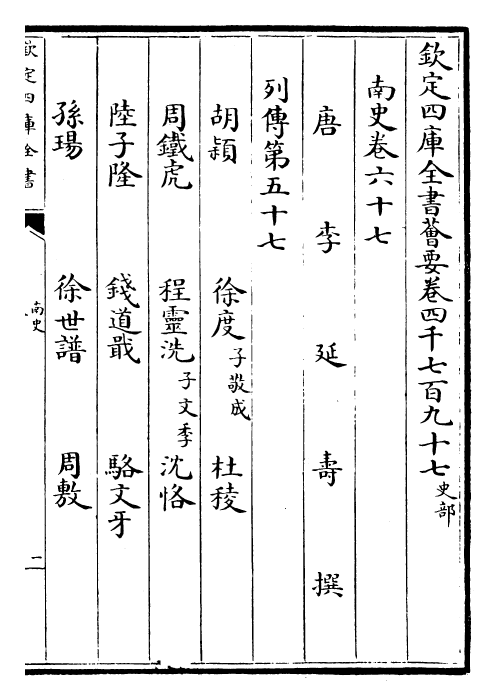 欽定四庫全書薈要卷四千七百九十七史部
南史卷六十七
唐李延壽撰
列傳第五十七
胡穎 徐度子敬成 杜稜
周鐵虎 程靈洗子文季 沈恪
陸子隆 錢道戢 駱文牙
孫瑒 徐世譜 周敷
欽定四庫全書
南史
二